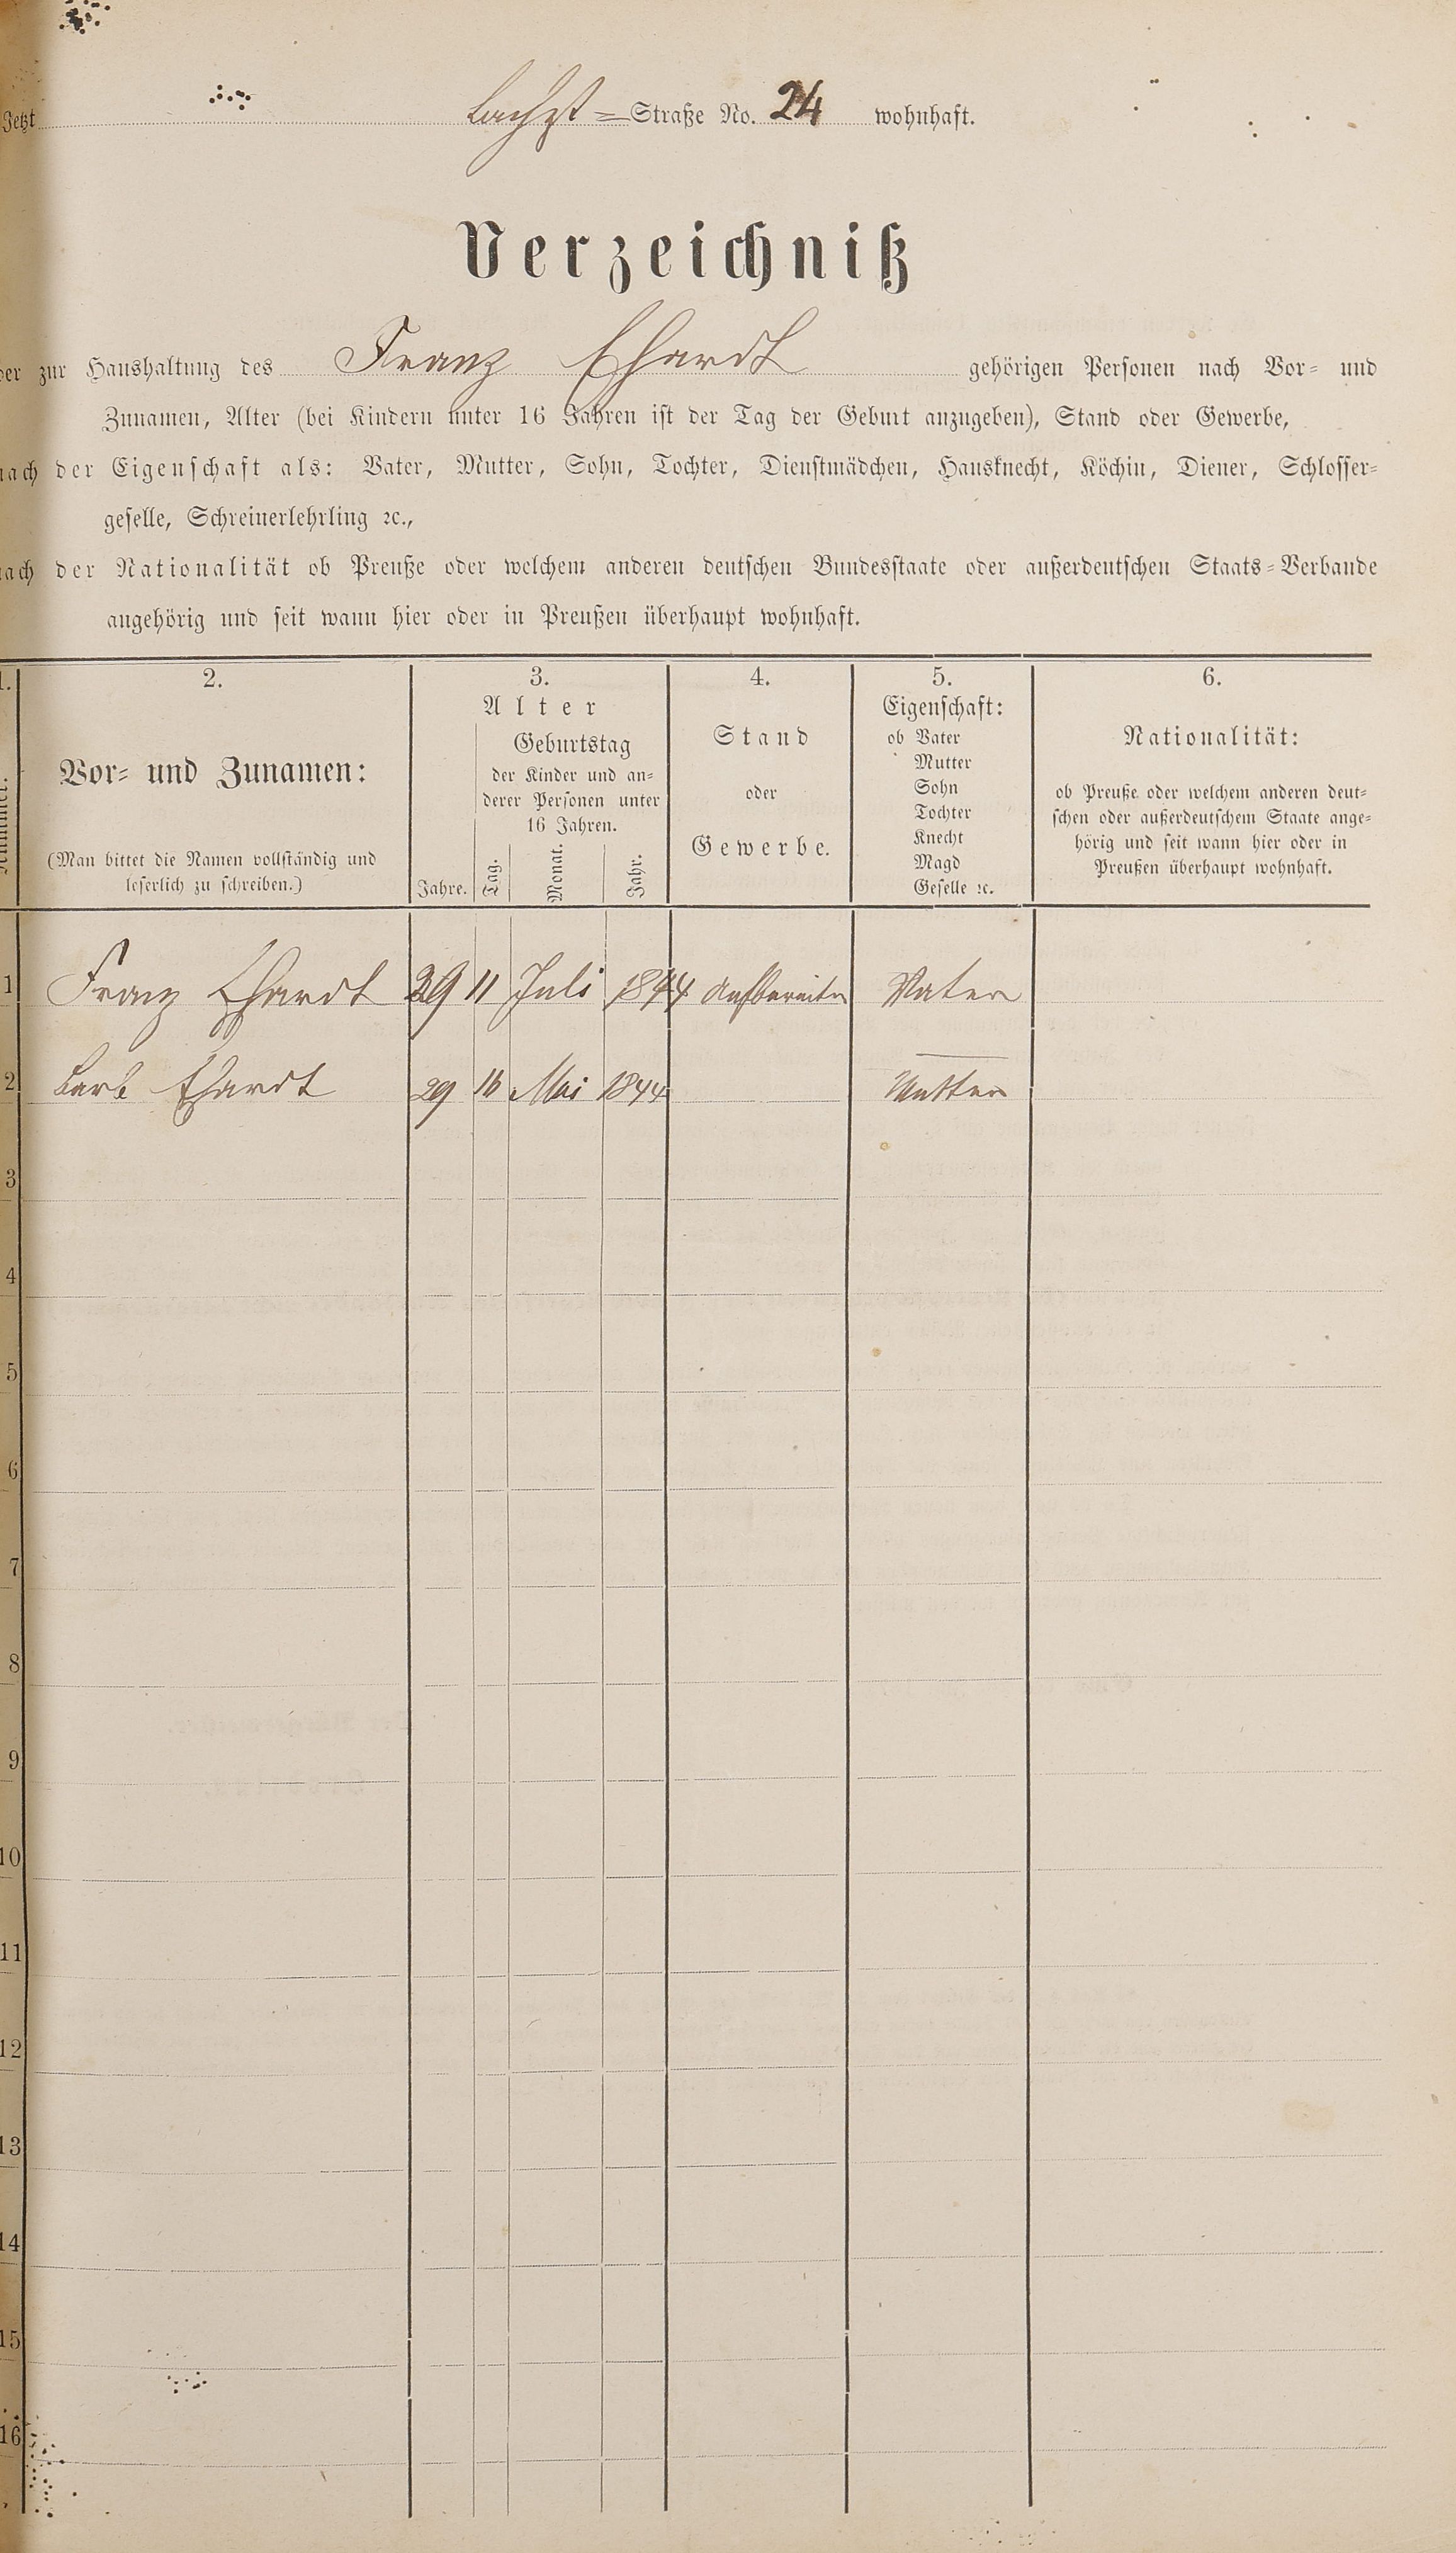 Jetzt Bachst = Straße No. 24 wohnhaft.
Verzeichniß
der zur Haushaltung des Franz Ehardt gehörigen Personen nach Vor- und
Zunamen, Alter (bei Kindern unter 16 Jahren ist der Tag der Geburt anzugeben), Stand oder Gewerbe,
nach der Eigenschaft als: Vater, Mutter, Sohn, Tochter, Dienstmädchen, Hausknecht, Köchin, Diener, Schlosser-
geselle, Schreinerlehrling ꝛc.,
nach der Nationalität ob Preuße oder welchem anderen deutschen Bundesstaate oder außerdeutschen Staats-Verbande
angehörig und seit wann hier oder in Preußen überhaupt wohnhaft.
1. 2. 3. 4. 5. 6.
Nummer.
Vor- und Zunamen:
(Man bittet die Namen vollständig und
leserlich zu schreiben.)
Alter
Jahre.
Geburtstag
der Kinder und an-
derer Personen unter
16 Jahren.
Tag. Monat. Jahr.
Stand
oder
Gewerbe.
Eigenschaft:
ob Vater
Mutter
Sohn
Tochter
Knecht
Magd
Geselle ꝛc.
Nationalität:
ob Preuße oder welchem anderen deut-
schen oder außerdeutschem Staate ange-
hörig und seit wann hier oder in
Preußen überhaupt wohnhaft.
1 Franz Ehardt 29 11 Juli 1844 Aufbereiter Vater
2 Barb Ehardt 29 16 Mai 1844 Mutter
3
4
5
6
7
8
9
10
11
12
13
14
15
16